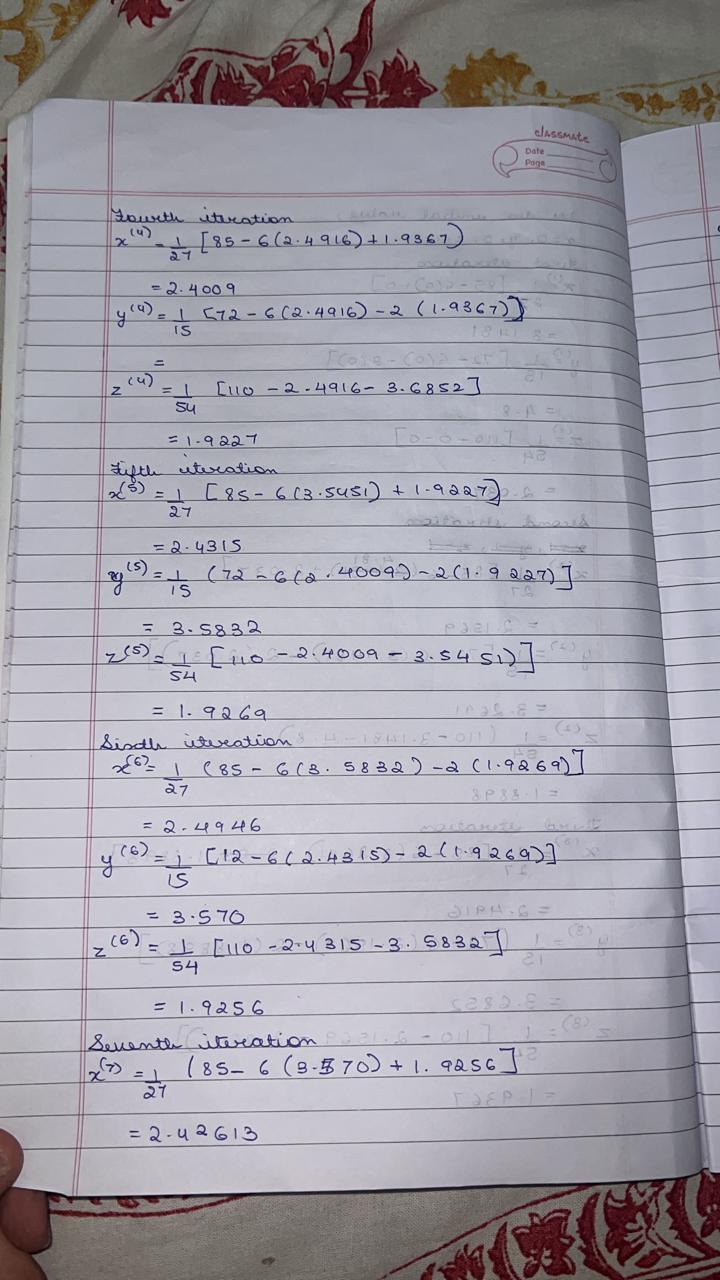 classmate
Date
Page
Fourth iteration
x^(4) = 1/27 [85 - 6(2.4916) + 1.9367)
= 2.4009
y^(4) = 1/15 [72 - 6(2.4916) - 2 (1.9367)]
=
z^(4) = 1/54 [110 - 2.4916 - 3.6852]
= 1.9227
Fifth iteration
x^(5) = 1/27 [85 - 6(3.5451) + 1.9227]
= 2.4315
y^(5) = 1/15 (72 - 6(2.4009) - 2(1.9227)]
= 3.5832
z^(5) = 1/54 [110 - 2.4009 - 3.5451)]
= 1.9269
Sixth iteration
x^(6) = 1/27 (85 - 6(3.5832) - 2(1.9269)]
= 2.4946
y^(6) = 1/15 [12 - 6(2.4315) - 2(1.9269)]
= 3.570
z^(6) = 1/54 [110 - 2.4315 - 3.5832]
= 1.9256
Seventh iteration
x^(7) = 1/27 (85 - 6(3.570) + 1.9256]
= 2.42613